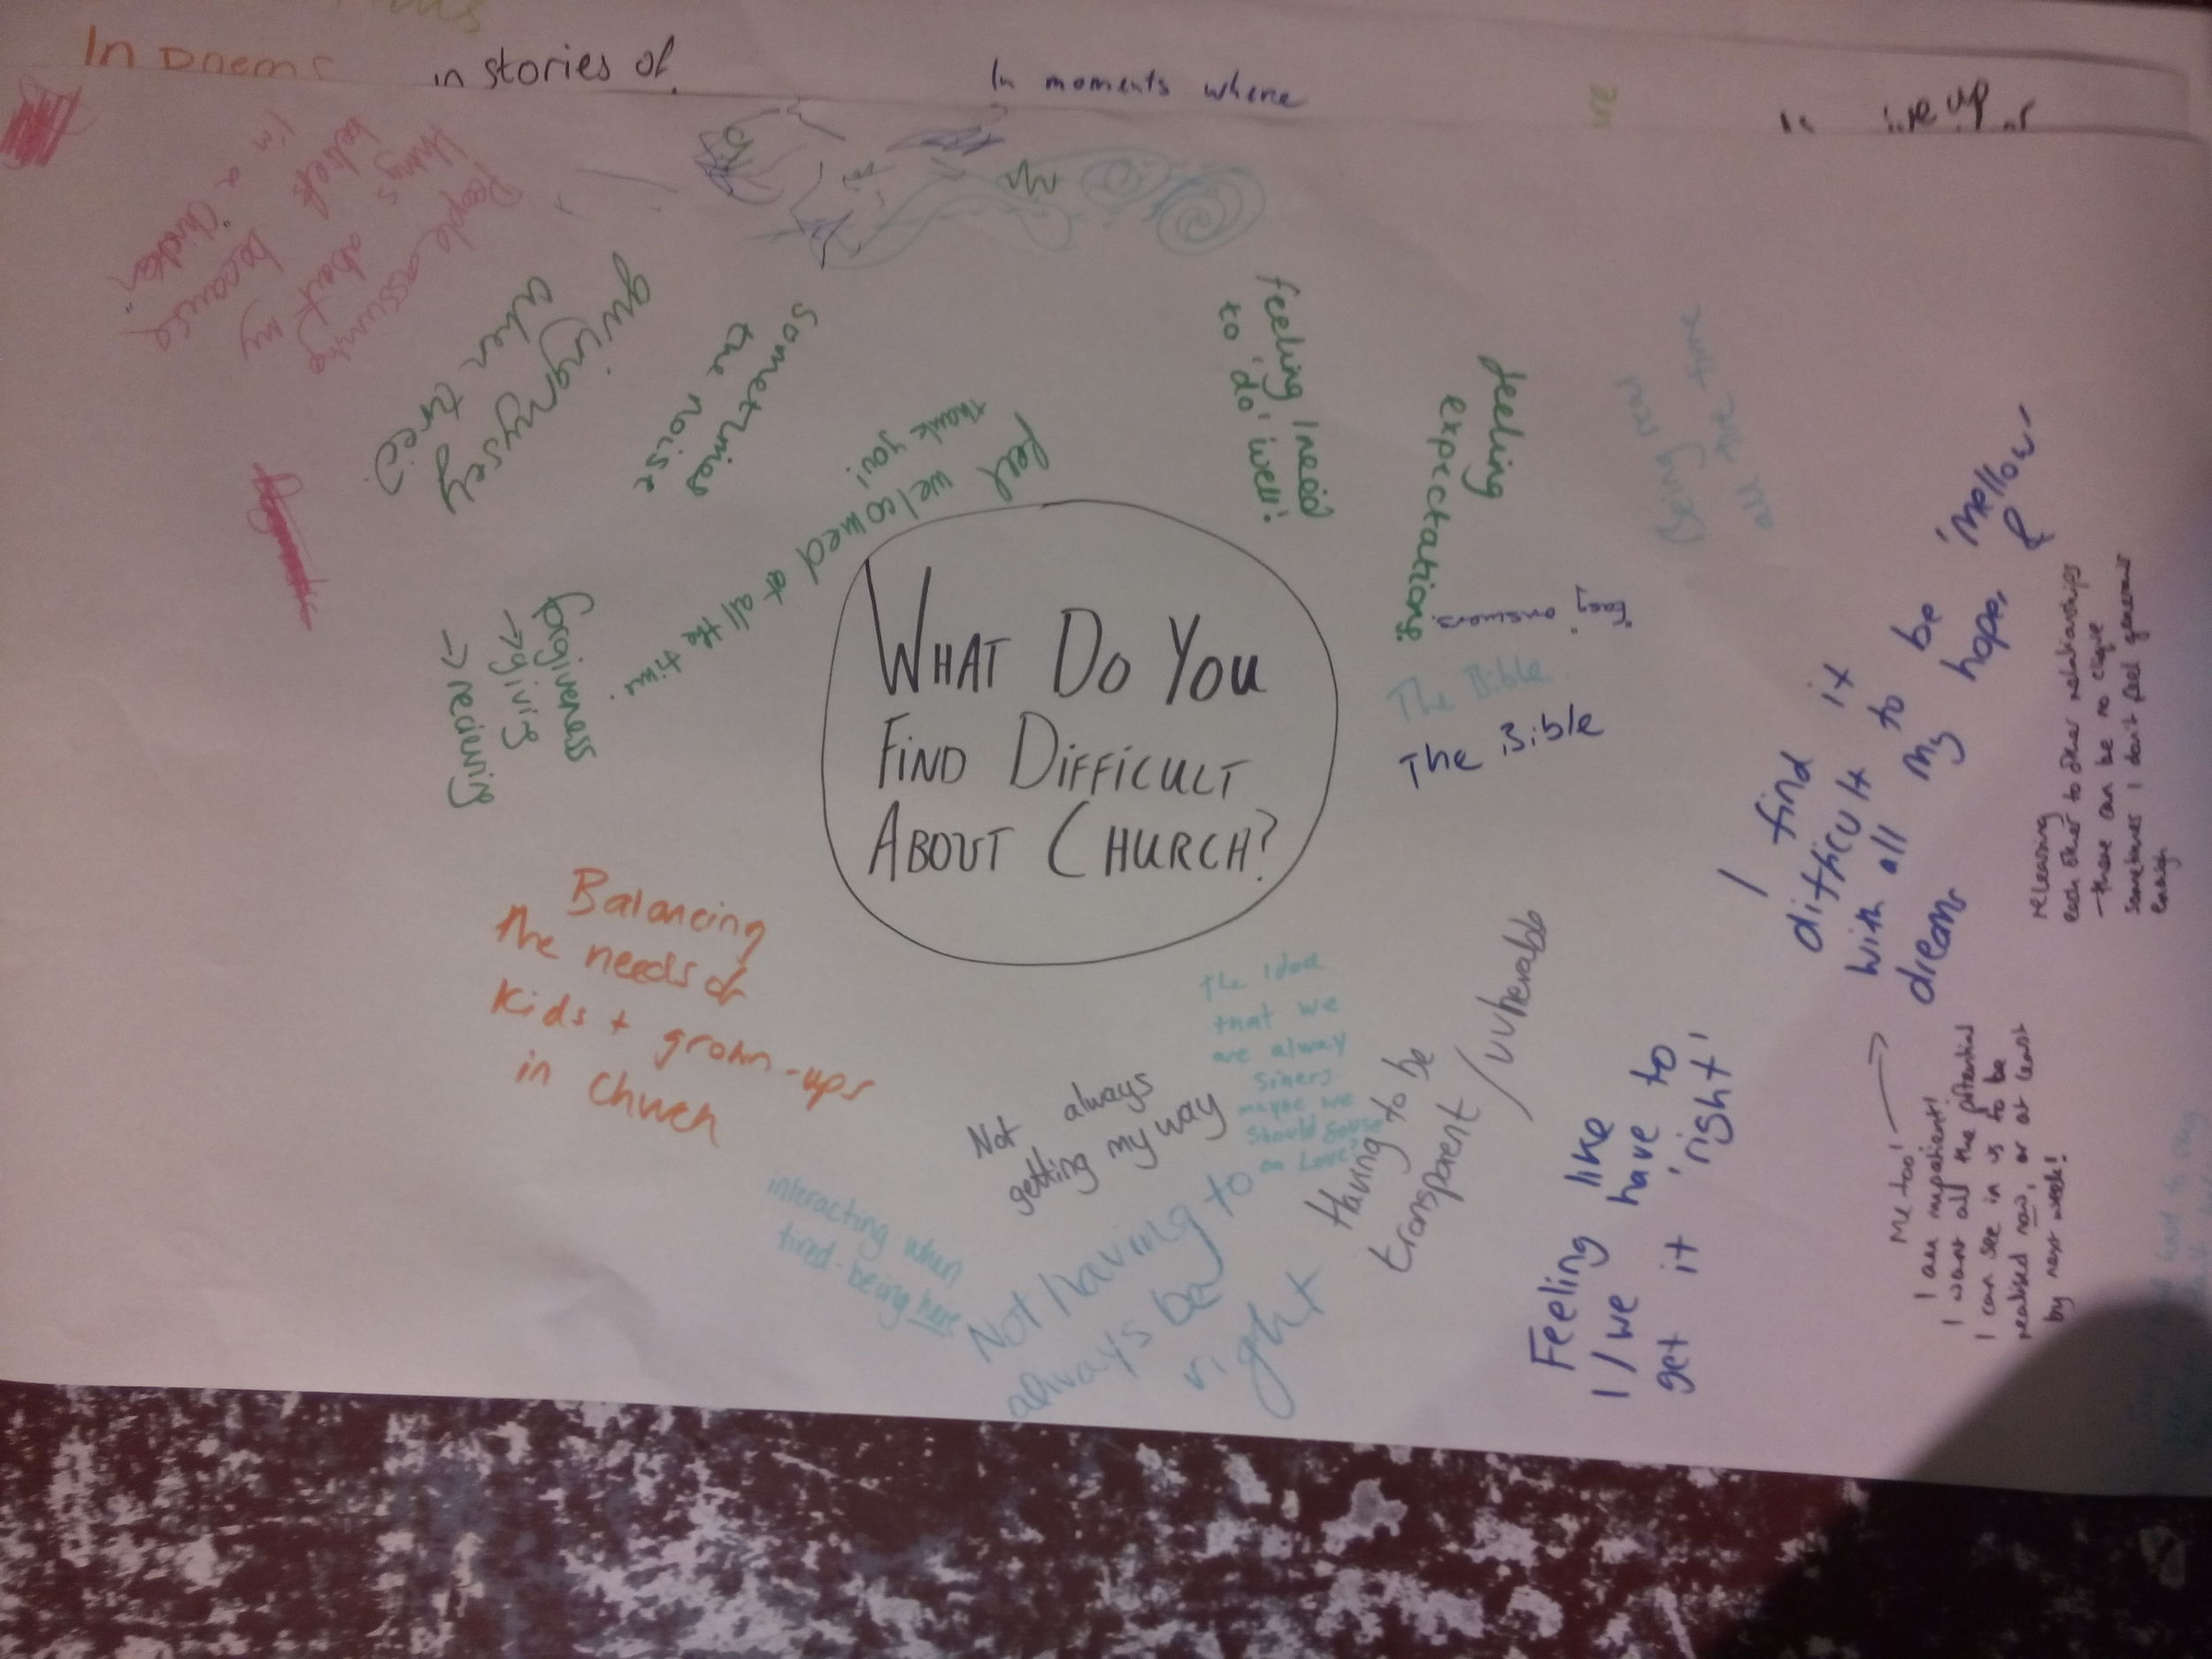 in stories of
In moments where
People assuming
things about my
beliefs because
I'm a
"Christian"
when tired
sometimes
the noise
feel welcomed at all the time.
thank you!
feeling I need
to 'do' well!
feeling
expectations.
Being real
all the time
"Easy" answers.
The Bible.
The Bible
WHAT DO YOU
FIND DIFFICULT
ABOUT CHURCH?
forgiveness
→giving
→receiving
Balancing
the needs of
kids + grown-ups
in church
I find it
difficult to be 'mellow'
with all my hopes, &
dreams
releasing
each other to other relationships
- there can be no clique
sometimes I don't feel generous
enough
The idea
that we
are alway
siners
maybe we
should
on Love?
Not always
getting my way
Having to be
transparent / vulnerable
interacting when
tired. being here
Not having to
always be
right
Feeling like
I/we have to
get it 'right'
Me too!
I am impatient!
I want all the potential
I can see in us to be
realised now, or at least
by next week!